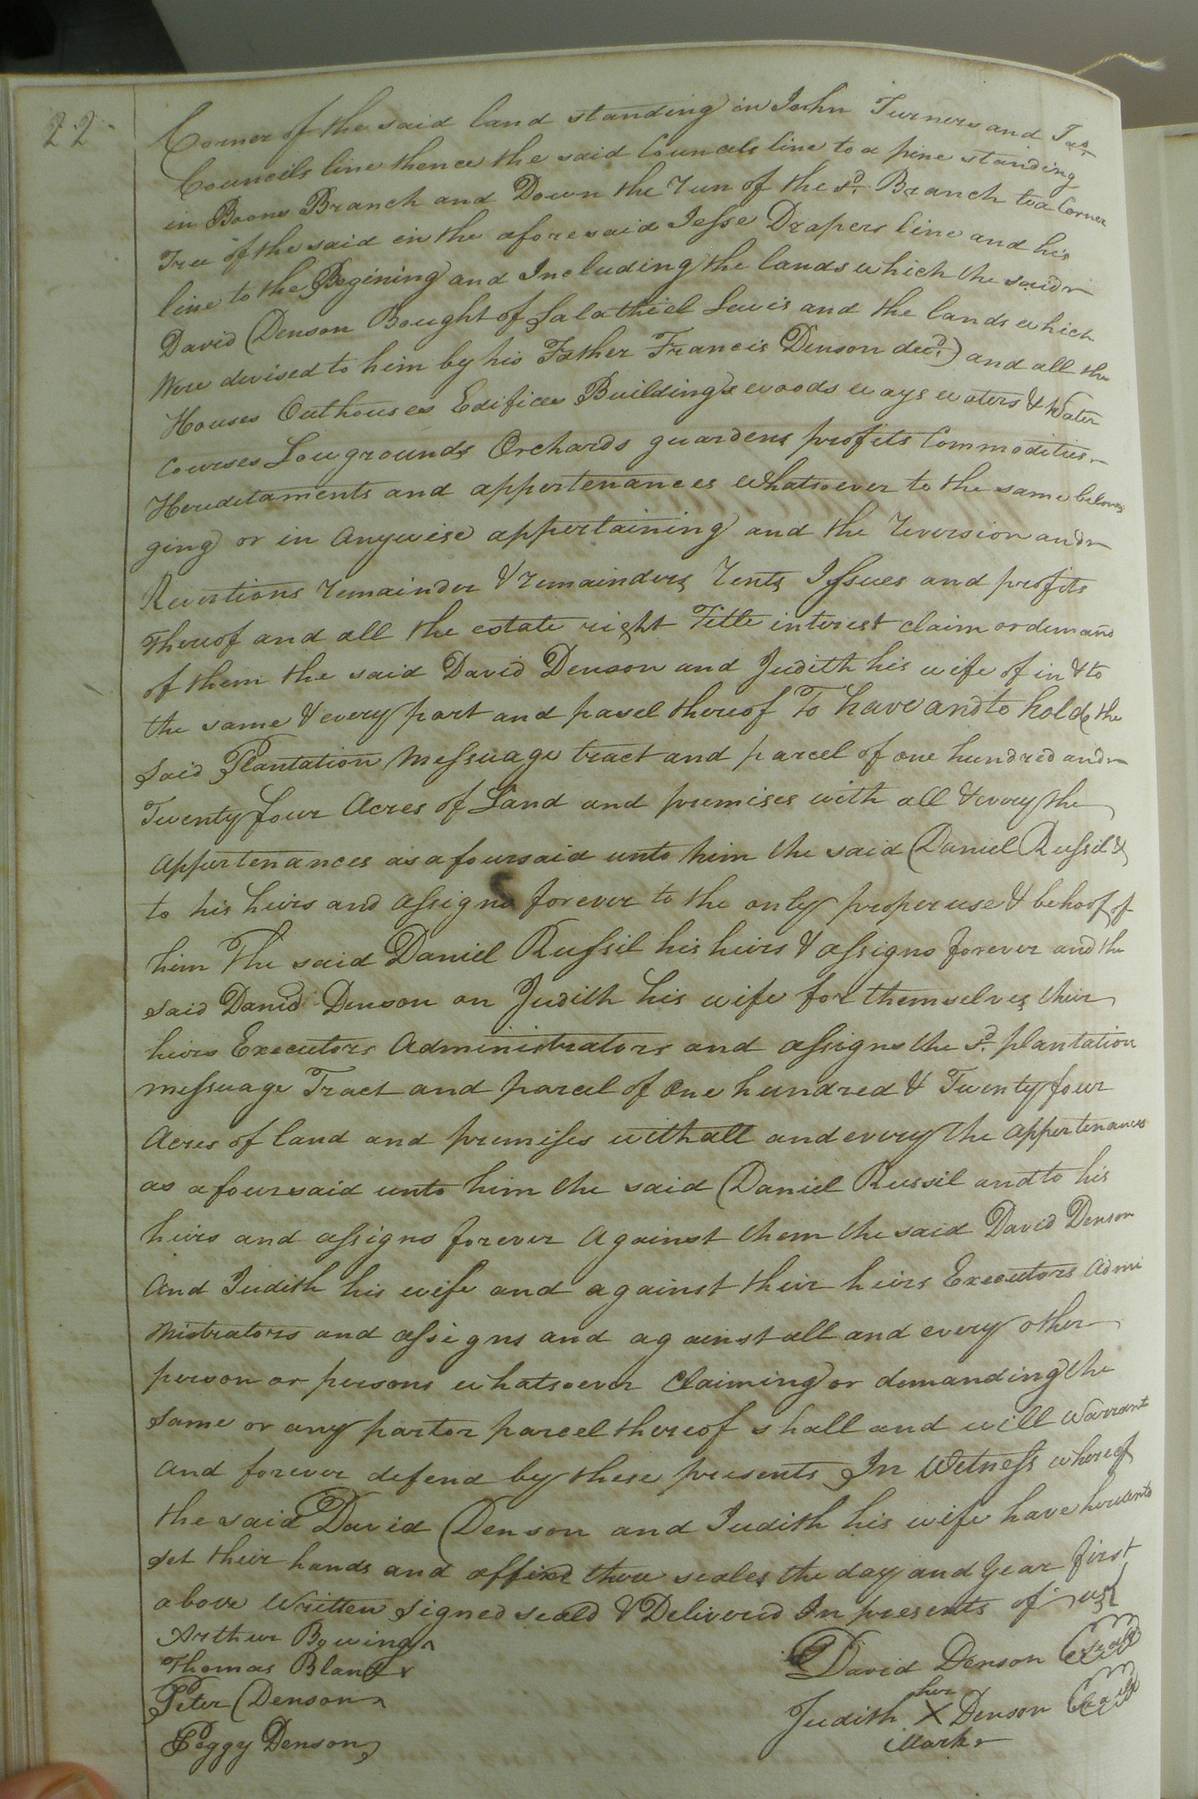 22
Corner of the said land standing in John Turners and Jas.
Councils line thence the said Councils line to a pine standing
in Boons Branch and Down the run of the sd. Branch to a Corner
Tree of the said in the aforesaid Jesse Drapers line and his
line to the Begining and Including the lands which the said
David (Denson Bought of Salathiel Lewis and the lands which
Were devised to him by his Father Francis Denson decd.) and all the
Houses Outhouses Edifices Buildings woods ways waters & Water
Courses Lowgrounds Orchards guardens profits Commodities
Hereditaments and appertenances whatsoever to the same belon
ging or in Anywise appertaining and the reversion and
Revertions remainder & remainders rents Issues and profits
Thereof and all the estate right Title interest claim or demand
of them the said David Denson and Judith his wife of in & to
the same & every part and pasel thereof To have and to hold the
Said Plantation Messuage tract and parcel of one hundred and
Twenty four Acres of Land and premises with all & every the
Appertenances as afoursaid unto him the said Daniel Russil &
to his heirs and Assigns forever to the only proper use & behoof of
him The said Daniel Russil his heirs & assigns forever and the
said David Denson an Judith his wife for themselves their
heirs Executors Administrators and assigns the sd. plantation
messuage Tract and parcel of One hundred & Twenty four
Acres of land and premises with all and every the appertenances
as afoursaid unto him the said Daniel Russil and to his
heirs and assigns forever Against them the said David Denson
And Judith his wife and against their heirs Executors Admi
nistrators and assigns and against all and every other
person or persons whatsoever Claiming or demanding the
Same or any part or parcel thereof shall and will Warrant
And forever defend by these presents In Witness whereof
the said David Denson and Judith his wife have hereunto
set their hands and affixd thire seales the day and year first
above Written Signed seald & Deliverd In presents of us
Arthur Bowing
Thomas Bland
Peter Denson
Peggy Denson
David Denson Seal
her
Judith X Denson Seal
Mark